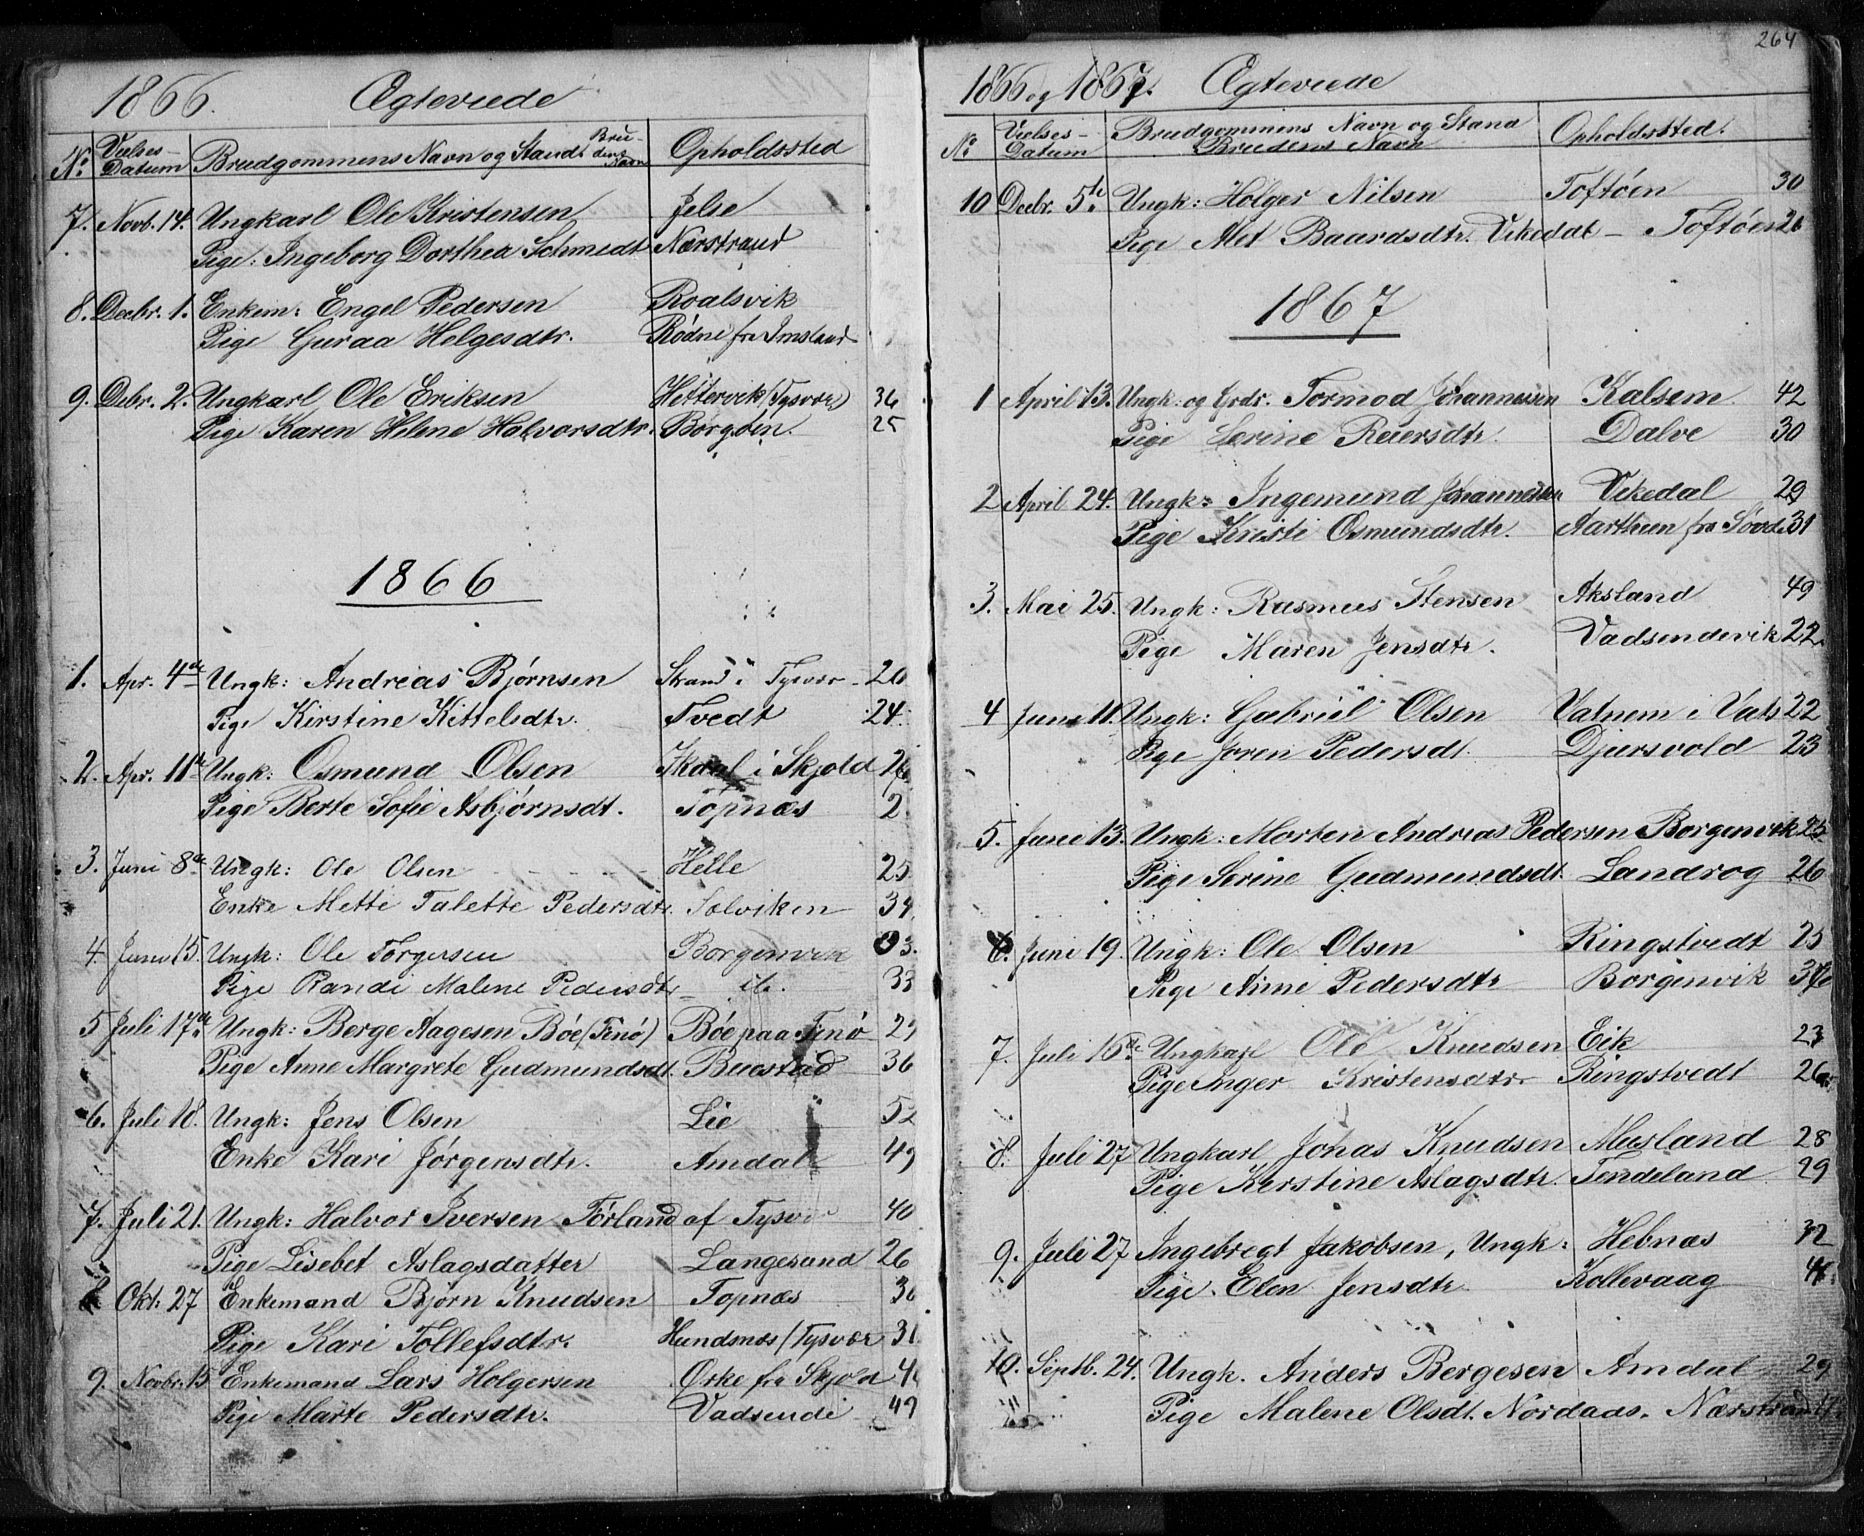 1866. Ægteviede
No. Vielses-Datum Brudgommens Navn og Stand. Brudens Navn Opholdssted
7. Novb. 14. Ungkarl Ole Kristensen Jelse
Pige: Ingeborg Dorthea Schmedt Nærstrand
8. Decbr. 1. Enkem: Engel Pedersen Roalsvik
Pige Guraa Helgesdtr. Rødne fra Imsland
9. Debr. 2. Ungkarl Ole Eriksen Hettervik (Tysvær) 36
Pige Karen Helene Halvorsdtr. Borgøen. 25
1866
1. Apr. 4de Ungk: Andreas Bjørnsen Strand i Tysvær 26
Pige Kirstine Kittelsdtr. Tvedt 24
2. Apr. 11te Ungk: Osmund Olsen i Skjold 26
Pige Berte Sofie Asbjørnsdt. Topnæs 2
3. Juni 8de Ungk: Ole Olsen Helle 25
Enke Mette Talette Pedersdtr. Solviken 34
4. Juni 15. Ungk: Ole Torgersen Borgenvik 33.
Pige Randi Malene Pedersdtr. it. 33
5 Juli 17de Ungk: Berge Aagesen Bøe (Finø) Bøe paa Finø 29
Pige Anne Margrete Gudmundsdt. Buestad 36
6. Juli 18. Ungk: Jens Olsen Lie 52
Enke Kari Jørgensdtr. Amdal 49
7. Juli 21. Ungk: Halvor Iversen Førland af Tysvær 40
Pige Lisebet Aslagsdatter Langesand 26
8 Okt. 27 Enkemand Bjørn Knudsen Topnæs 36
Pige Kari Tollefsdtr. Hundsnæs (Tysvær 31
9. Novbr. 15 Enkemand Lars Holgersen Ørke fra Skjold 4
Pige Marte Pedersdtr. Vadsendi 49
264
1866 og 1867. Ægteviede
No. Vielses-Datum Brudgommens Navn og Stand Brudens Navn Opholdssted.
10 Decbr. 5te Ungk: Holger Nilsen Toftøen 30
Pige Alet Baardsdtr. Vikedal – Toftøen 26
1867
1 April 13. Ungk: og Grdr. Tormod Johannesen Kalsem 42
Pige Serine Reiersdtr. Dalve 30
2 April 24. Ungk: Ingemund Johannesen Vikedal 29
Pige Kristi Osmundsdtr. Aarthun fra Søvde 31
3. Mai 25. Ungk: Rasmus Stensen Aksland 49
Pige Maren Jensdtr. Vadsendevik 22.
4 Juni 11. Ungk: Gabriel Olsen Vatnem i Vats 22
Pige Joren Pedersdt. Djursvold 23
5. Juni 13. Ungk: Morten Andreas Pedersen Borgenvik 25
Pige Serine Gudmundsdt. Landrog 26
6. Juni 19. Ungk: Ole Olsen Ringstvedt 25
Pige Anne Pedersdtr Borgenvik 36
7. Juli 16de Ungkarl Ole Knudsen Eik 23
Pige Inger Kristensdtr. Ringstvedt 26
8. Juli 27 Ungkarl Jonas Knudsen Musland 28
Pige Kerstine Aslagsdtr. Tendeland 29
9. Juli 27 Ingebregt Jakobsen, Ungk: Hebnæs 32
Pige. Elen Jensdtr. Kollevaag
10. Septb. 24. Ungk. Anders Bergesen Amdal 29
Pige Malene Olsdt. Nordaas. Nærstrand